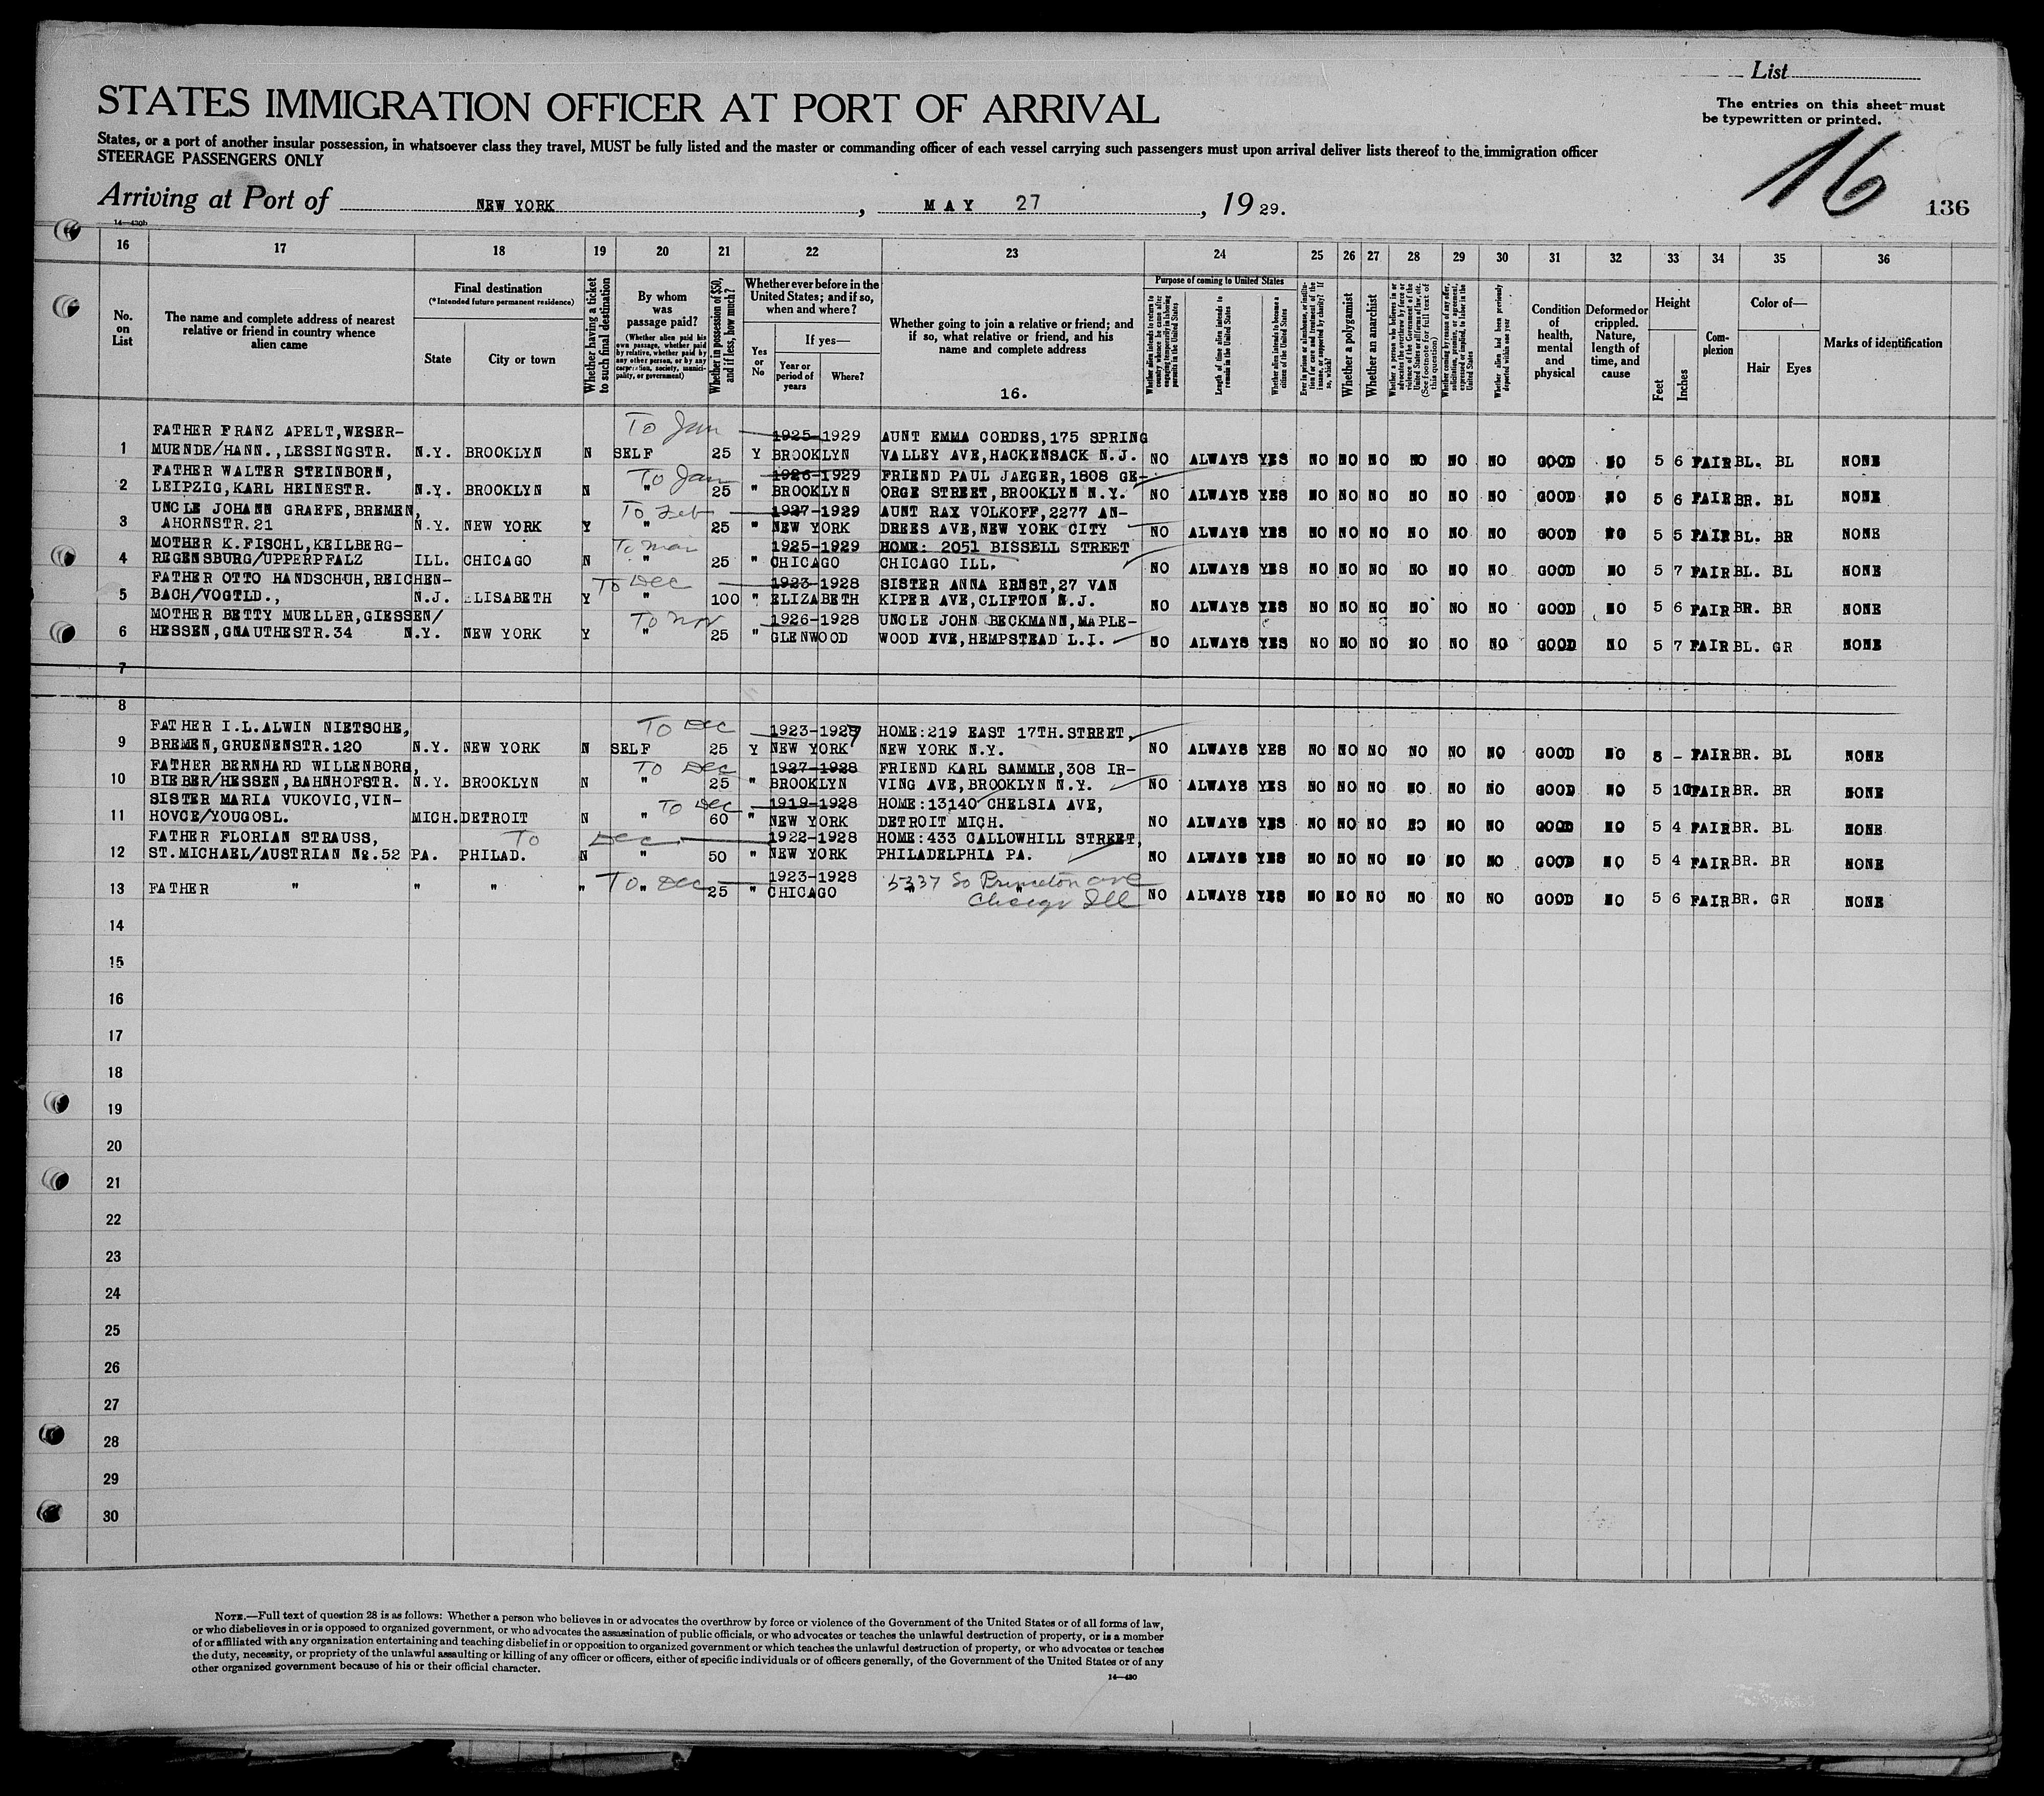 List
STATES IMMIGRATION OFFICER AT PORT OF ARRIVAL
The entries on this sheet must
be typewritten or printed.
States, or a port of another insular possession, in whatsoever class they travel, MUST be fully listed and the master or commanding officer of each vessel carrying such passengers must upon arrival deliver lists thereof to the immigration officer
STEERAGE PASSENGERS ONLY
16
Arriving at Port of NEW YORK, MAY 27, 1929.
136
14—430b
16 17 18 19 20 21 22 23 24 25 26 27 28 29 30 31 32 33 34 35 36
No. on List
The name and complete address of nearest relative or friend in country whence alien came
Final destination
(*Intended future permanent residence)
State
City or town
Whether having a ticket to such final destination
By whom was passage paid?
(Whether alien paid his own passage, whether paid by relative, whether paid by any other person, or by any corporation, society, municipality, or government)
Whether in possession of $50, and if less, how much?
Whether ever before in the United States; and if so, when and where?
Yes or No
If yes—
Year or period of years
Where?
Whether going to join a relative or friend; and if so, what relative or friend, and his name and complete address
16.
Purpose of coming to United States
Whether alien intends to return to country whence he came after engaging temporarily in laboring pursuits in the United States
Length of time alien intends to remain in the United States
Whether alien intends to become a citizen of the United States
Ever in prison or almshouse, or institution for care and treatment of the insane, or supported by charity? If so, which?
Whether a polygamist
Whether an anarchist
Whether a person who believes in or advocates the overthrow by force or violence of the Government of the United States or all forms of law, etc. (See footnote for full text of this question)
Whether coming by reason of any offer, solicitation, promise, or agreement, expressed or implied, to labor in the United States
Whether alien had been previously deported within one year
Condition of health, mental and physical
Deformed or crippled. Nature, length of time, and cause
Height
Feet
Inches
Complexion
Color of—
Hair
Eyes
Marks of identification
FATHER FRANZ APELT, WESER- To Jan 1925-1929 AUNT EMMA CORDES, 175 SPRING
1 MUENDE/HANN., LESSINGSTR. N.Y. BROOKLYN N SELF 25 Y BROOKLYN VALLEY AVE, HACKENSACK N.J. NO ALWAYS YES NO NO NO NO NO NO GOOD NO 5 6 FAIR BL. BL NONE
FATHER WALTER STEINBORN, To Jan 1926-1929 FRIEND PAUL JAEGER, 1808 GE-
2 LEIPZIG, KARL HEINESTR. N.Y. BROOKLYN N " 25 " BROOKLYN ORGE STREET, BROOKLYN N.Y. NO ALWAYS YES NO NO NO NO NO NO GOOD NO 5 6 FAIR BR. BL NONE
UNCLE JOHANN GRAEFE, BREMEN, To Feb 1927-1929 AUNT RAX VOLKOFF, 2277 AN-
3 AHORNSTR. 21 N.Y. NEW YORK Y " 25 " NEW YORK DREES AVE, NEW YORK CITY NO ALWAYS YES NO NO NO NO NO NO GOOD NO 5 5 FAIR BL. BR NONE
MOTHER K. FISCHL, KEILBERG- To Mar 1925-1929 HOME: 2051 BISSELL STREET
4 REGENSBURG/UPPERPFALZ ILL. CHICAGO N " 25 " CHICAGO CHICAGO ILL. NO ALWAYS YES NO NO NO NO NO NO GOOD NO 5 7 FAIR BL. BL NONE
FATHER OTTO HANDSCHUH, REICHEN- To Dec 1923-1928 SISTER ANNA ERNST, 27 VAN
5 BACH/VOGTLD., N.J. ELISABETH Y " 100 " ELIZABETH KIPER AVE, CLIFTON N.J. NO ALWAYS YES NO NO NO NO NO NO GOOD NO 5 6 FAIR BR. BR NONE
MOTHER BETTY MUELLER, GIESSEN/ To Nov 1926-1928 UNCLE JOHN BECKMANN, MAPLE-
6 HESSEN, GNAUTHESTR. 34 N.Y. NEW YORK Y " 25 " GLENWOOD WOOD EVE, HEMPSTEAD L.I. NO ALWAYS YES NO NO NO NO NO NO GOOD NO 5 7 FAIR BL. GR NONE
7
8
FATHER I.L. ALWIN NIETSCHE, To Dec 1923-1927 HOME: 219 EAST 17TH. STREET,
9 BREMEN, GRUENENSTR. 120 N.Y. NEW YORK N SELF 25 Y NEW YORK NEW YORK N.Y. NO ALWAYS YES NO NO NO NO NO NO GOOD NO 5 - FAIR BR. BL NONE
FATHER BERNHARD WILLENBORG, To Dec 1927-1928 FRIEND KARL SAMMLE, 308 IR-
10 BIEBER/HESSEN, BAHNHOFSTR. N.Y. BROOKLYN N " 25 " BROOKLYN VING AVE, BROOKLYN N.Y. NO ALWAYS YES NO NO NO NO NO NO GOOD NO 5 10 FAIR BR. BR NONE
SISTER MARIA VUKOVIC, VIN- To Dec 1919-1928 HOME: 13140 CHELSIA AVE,
11 HOVCE/YOUGOSL. MICH. DETROIT N " 60 " NEW YORK DETROIT MICH. NO ALWAYS YES NO NO NO NO NO NO GOOD NO 5 4 FAIR BR. BL NONE
FATHER FLORIAN STRAUSS, To Dec 1922-1928 HOME: 433 CALLOWHILL STREET,
12 ST. MICHAEL/AUSTRIAN No. 52 PA. PHILAD. N " 50 " NEW YORK PHILADELPHIA PA. NO ALWAYS YES NO NO NO NO NO NO GOOD NO 5 4 FAIR BR. BR NONE
To Dec 1923-1928 5337 So Princeton ave
13 FATHER " " " " " 25 " CHICAGO " " Chicago Ill NO ALWAYS YES NO NO NO NO NO NO GOOD NO 5 6 FAIR BR. GR NONE
14
15
16
17
18
19
20
21
22
23
24
25
26
27
28
29
30
NOTE.—Full text of question 28 is as follows: Whether a person who believes in or advocates the overthrow by force or violence of the Government of the United States or of all forms of law,
or who disbelieves in or is opposed to organized government, or who advocates the assassination of public officials, or who advocates or teaches the unlawful destruction of property, or is a member
of or affiliated with any organization entertaining and teaching disbelief in or opposition to organized government or which teaches the unlawful destruction of property, or who advocates or teaches
the duty, necessity, or propriety of the unlawful assaulting or killing of any officer or officers, either of specific individuals or of officers generally, of the Government of the United States or of any
other organized government because of his or their official character.
14—430